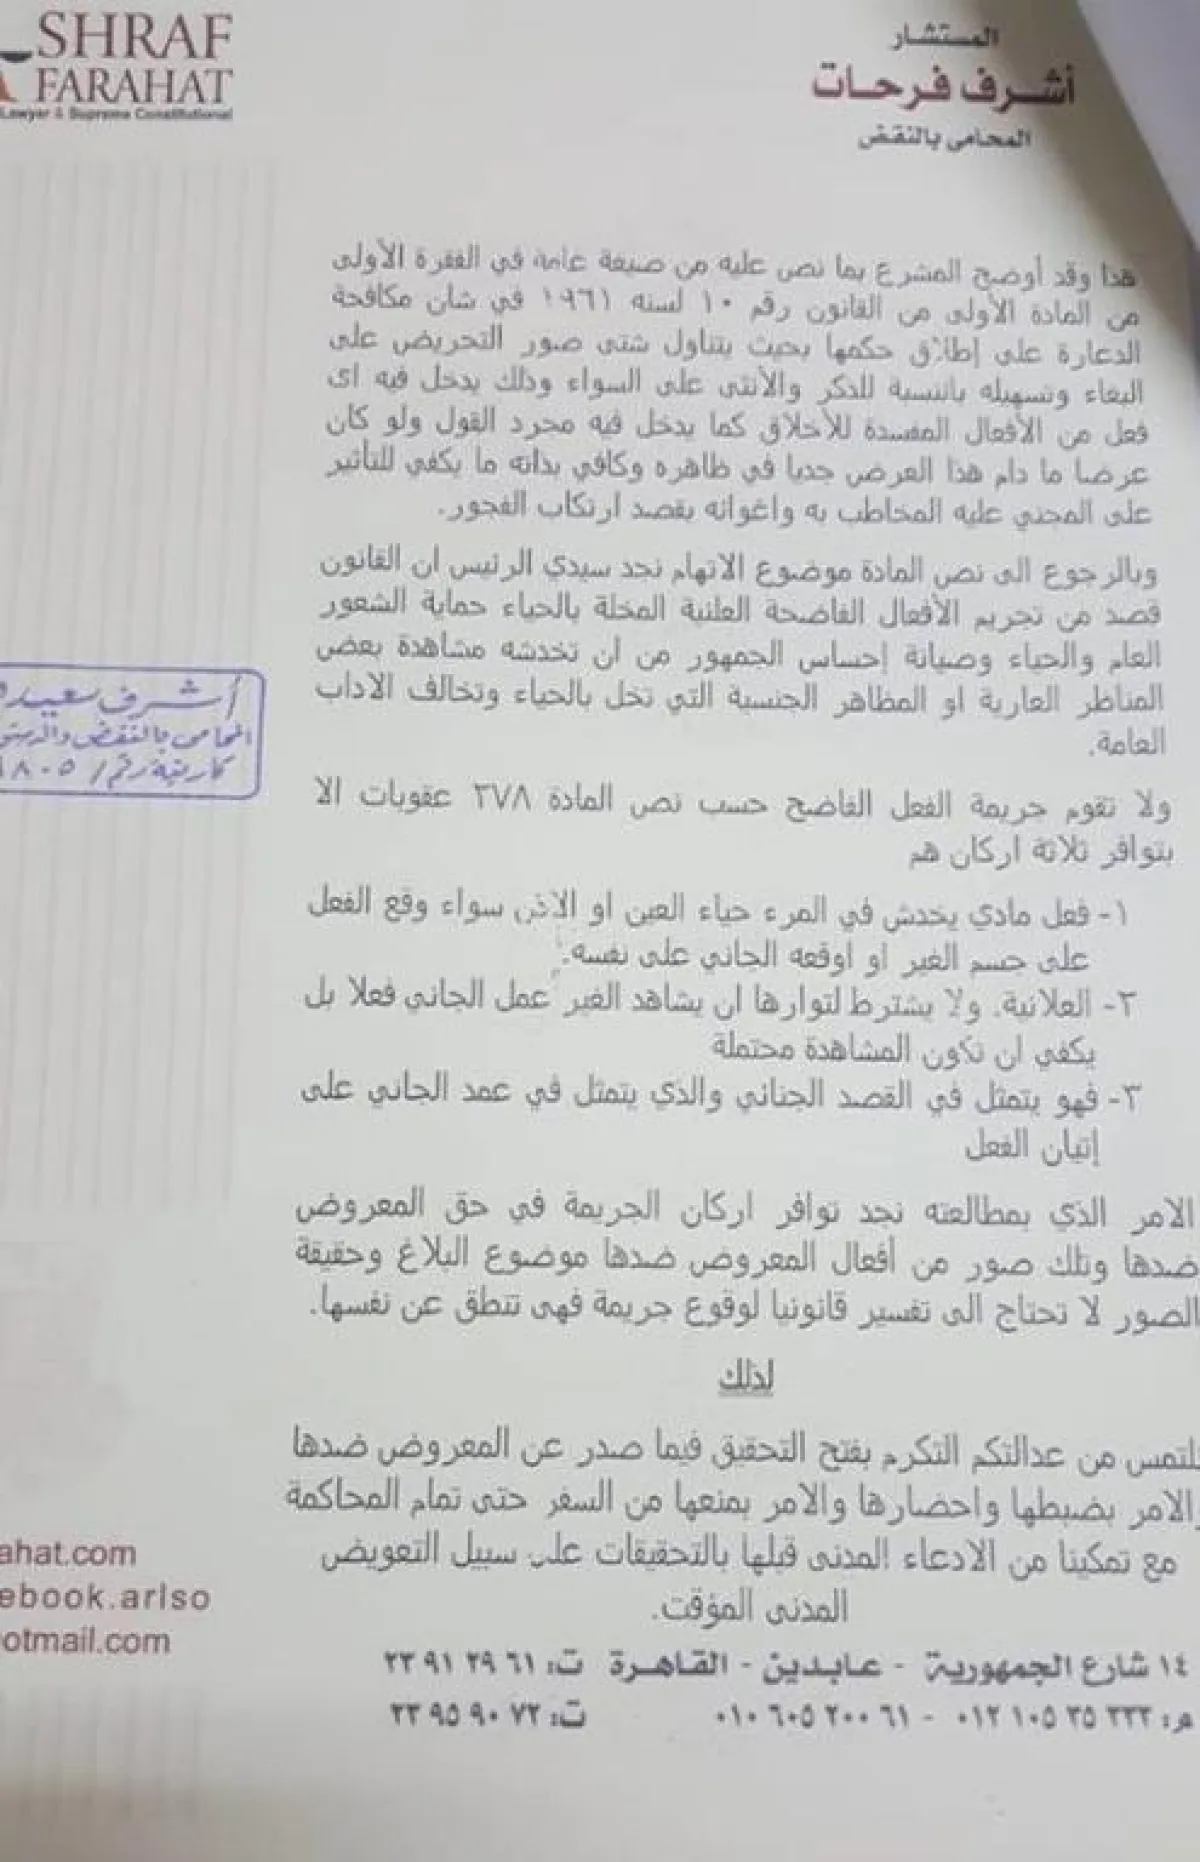 SHRAF
FARAHAT
Lawyer & Supreme Constitutional
المستشار
أشرف فرحات
المحامى بالنقض
هذا وقد أوضح المشرع بما نص عليه من صيغة عامة في الفقرة الأولى
من المادة الأولى من القانون رقم ١٠ لسنه ١٩٦١ في شان مكافحة
الدعارة على إطلاق حكمها بحيث يتناول شتى صور التحريض على
البغاء وتسهيله بالنسبة للذكر والأنثى على السواء وذلك يدخل فيه اى
فعل من الأفعال المفسدة للأخلاق كما يدخل فيه مجرد القول ولو كان
عرضا ما دام هذا العرض جديا في ظاهره وكافي بذاته ما يكفي للتأثير
على المجني عليه المخاطب به واغوائه بقصد ارتكاب الفجور.
وبالرجوع الى نص المادة موضوع الاتهام نجد سيدي الرئيس ان القانون
قصد من تجريم الأفعال الفاضحة العلنية المخلة بالحياء حماية الشعور
العام والحياء وصيانة إحساس الجمهور من ان تخدشه مشاهدة بعض
المناظر العارية او المظاهر الجنسية التي تخل بالحياء وتخالف الاداب
العامة.
أشرف سعيد
المحامى بالنقض والدستو
كارنية رقم / ١٨٠٥
ولا تقوم جريمة الفعل الفاضح حسب نص المادة ٢٧٨ عقوبات الا
بتوافر ثلاثة اركان هم
١- فعل مادي يخدش في المرء حياء العين او الاذن سواء وقع الفعل
على جسم الغير او اوقعه الجاني على نفسه.
٢- العلانية. ولا يشترط لتوارها ان يشاهد الغير عمل الجاني فعلا بل
يكفي ان تكون المشاهدة محتملة
٣- فهو يتمثل في القصد الجنائي والذي يتمثل في عمد الجاني على
إتيان الفعل
الامر الذي بمطالعته نجد توافر اركان الجريمة في حق المعروض
ضدها وتلك صور من أفعال المعروض ضدها موضوع البلاغ وحقيقة
الصور لا تحتاج الى تفسير قانونيا لوقوع جريمة فهى تنطق عن نفسها.
لذلك
نلتمس من عدالتكم التكرم بفتح التحقيق فيما صدر عن المعروض ضدها
والامر بضبطها واحضارها والامر بمنعها من السفر حتى تمام المحاكمة
مع تمكينا من الادعاء المدنى قبلها بالتحقيقات على سبيل التعويض
المدنى المؤقت.
ahat.com
ebook.arlso
otmail.com
١٤ شارع الجمهورية - عابدين - القاهرة ت: ٢٣٩١٢٩٦١
م: ٠١٢١٠٥٣٥٣٣٣ - ٠١٠٦٠٥٢٠٠٦١ ت: ٢٣٩٥٩٠٧٢